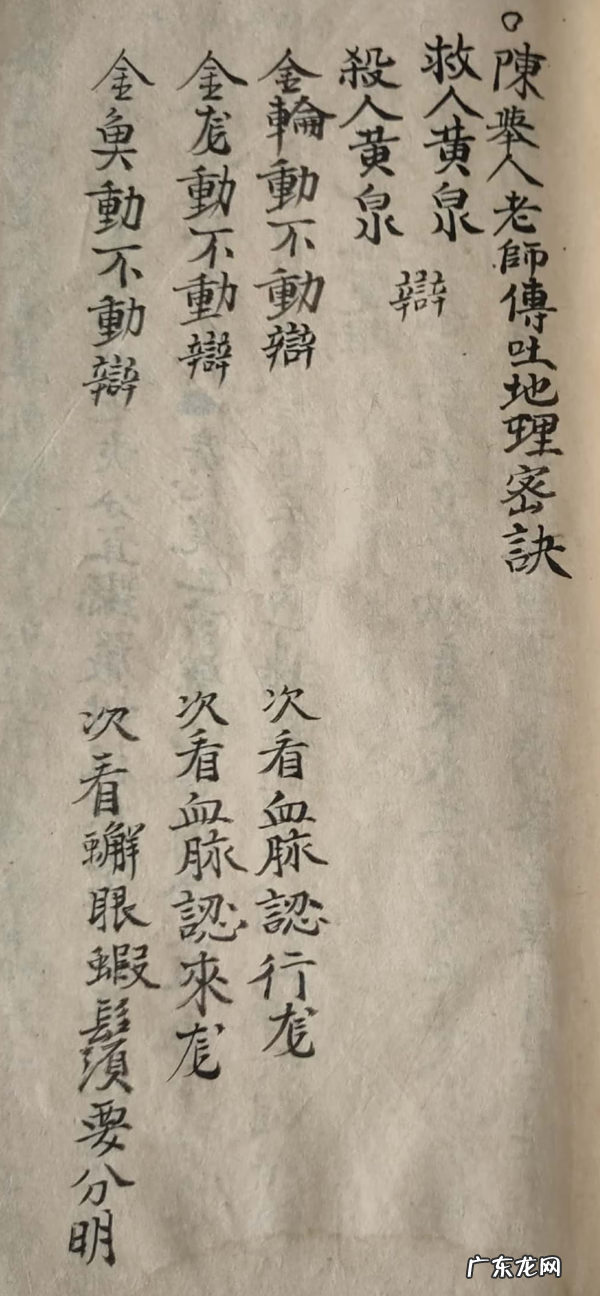 ○陳舉人老師傳吐地理密訣
救人黄泉
殺人黄泉
辯
金輪動不動辯
次看血脉認行龙
金龙動不動辯
次看血脉認來龙
金魚動不動辯
次看蠏眼蝦鬚要分明
广东龙网